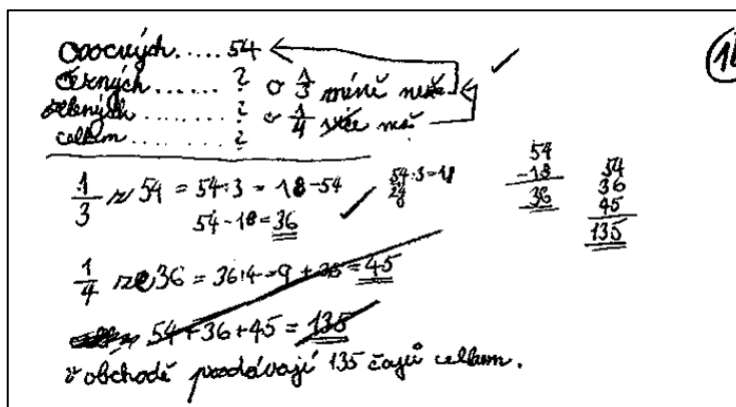 ovocných..... 54
černých...... ? o 1/3 méně než
zelených...... ? o 1/4 více než
celkem...... ?
1/3 z 54 = 54:3 = 18-54
54:3=18
24
0
54-18=36
54
-18
36
54
36
45
135
1/4 ze 36 = 36:4=9+36=45
54+36+45=135
v obchodě prodávají 135 čajů celkem.